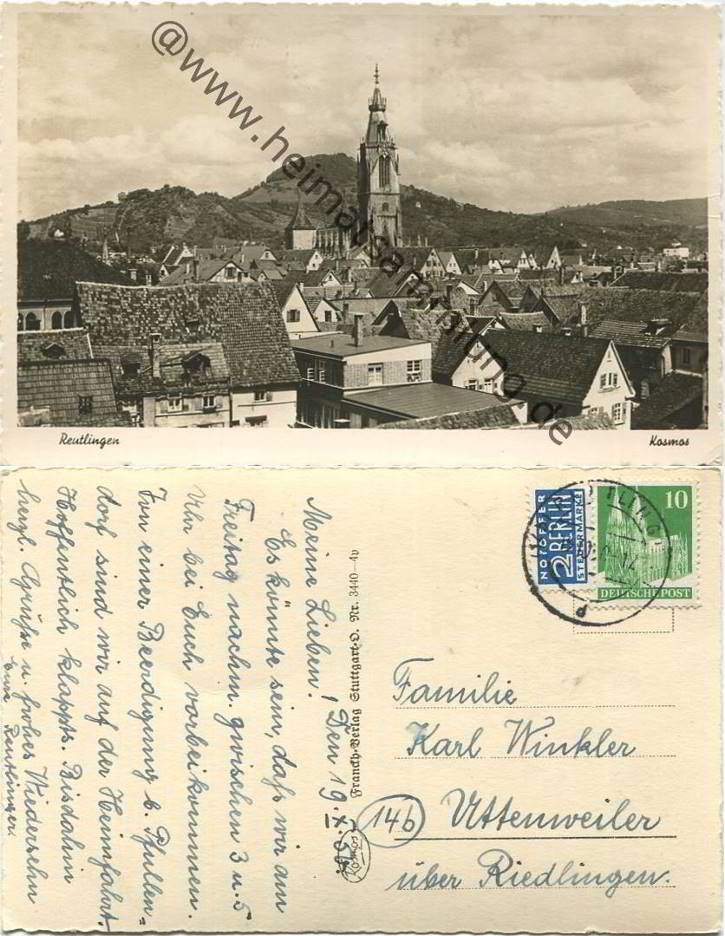 @www.heimatsammlung.de
Reutlingen
Kosmos
Meine Lieben! Den 19. X. 50.
Es könnte sein, daß wir am
Freitag nachm. zwischen 3 u. 5
Uhr bei Euch vorbeikommen.
Von einer Beerdigung b. Pfullen=
dorf sind wir auf der Heimfahrt.
Hoffentlich klappts. Bisdahin
herzl. Grüße u. frohes Wiedersehn
Eure Reutlinger.
Franckh-Verlag Stuttgart-O. Nr. 3440-4v
Kosmos
NOTOPFER
2 BERLIN
STEUERMARKE
10
DEUTSCHE POST
Familie
Karl Winkler
14b Uttenweiler
über Riedlingen.